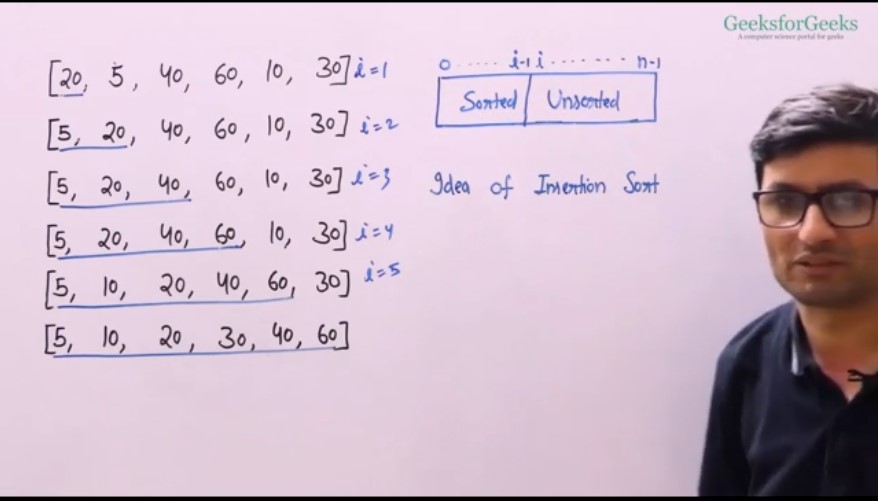 GeeksforGeeks
A computer science portal for geeks
[20, 5, 40, 60, 10, 30] i=1
[5, 20, 40, 60, 10, 30] i=2
[5, 20, 40, 60, 10, 30] i=3
[5, 20, 40, 60, 10, 30] i=4
[5, 10, 20, 40, 60, 30] i=5
[5, 10, 20, 30, 40, 60]
0 ..... i-1 i ....... n-1
Sorted Unsorted
Idea of Insertion Sort